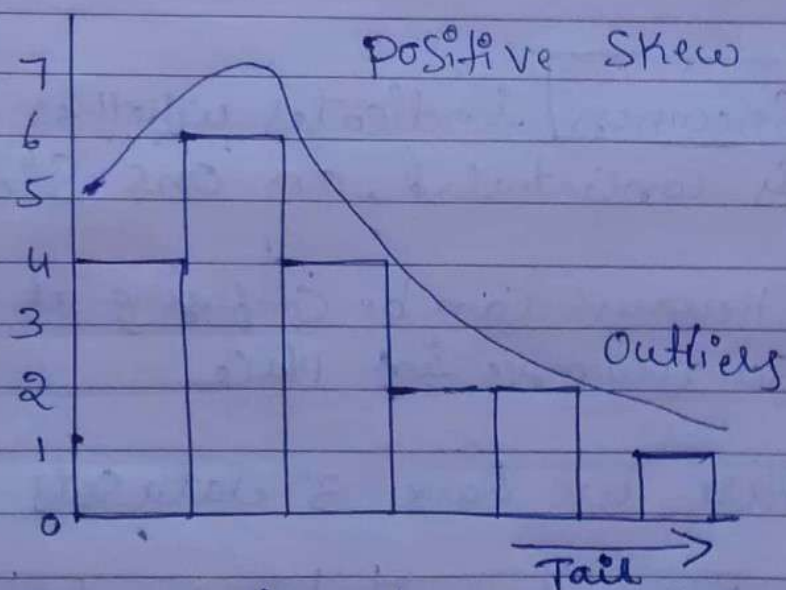 Positive Skew
7
6
5
4
3
2
1
0
Outliers
Tail